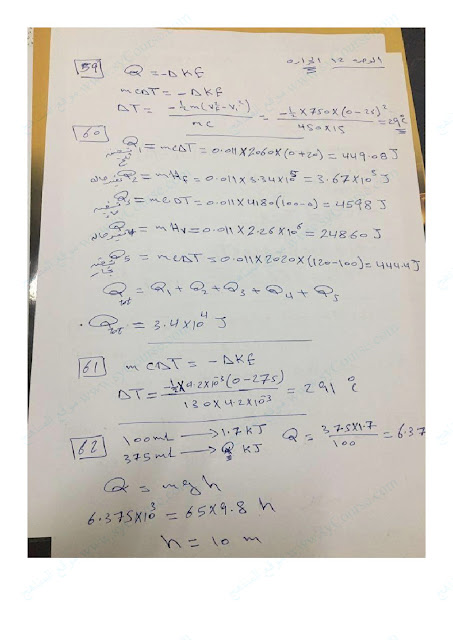 59
Q = -ΔKE
mcΔT = -ΔKE
ΔT = -½m(V_f²-V_i²) / mc = -½×750×(0-25)² / 450×15 = 29°C
60
Q₁ = mcΔT = 0.011×2060×(0+20) = 449.08 J
Q₂ = mH_f = 0.011×3.34×10⁵ = 3.67×10³ J
Q₃ = mcΔT = 0.011×4180(100-0) = 4598 J
Q₄ = mHv = 0.011×2.26×10⁶ = 24860 J
Q₅ = mcΔT = 0.011×2020×(120-100) = 444.4 J
Q_tot = Q₁ + Q₂ + Q₃ + Q₄ + Q₅
Q_tot = 3.4×10⁴ J
61
mcΔT = -ΔKE
ΔT = -½×4.2×10⁻³(0-275) / 130×4.2×10⁻³ = 291 °C
62
100ml → 1.7 KJ
375ml → Q KJ
Q = 375×1.7 / 100 = 6.37
Q = mgh
6.375×10³ = 65×9.8 h
h = 10 m